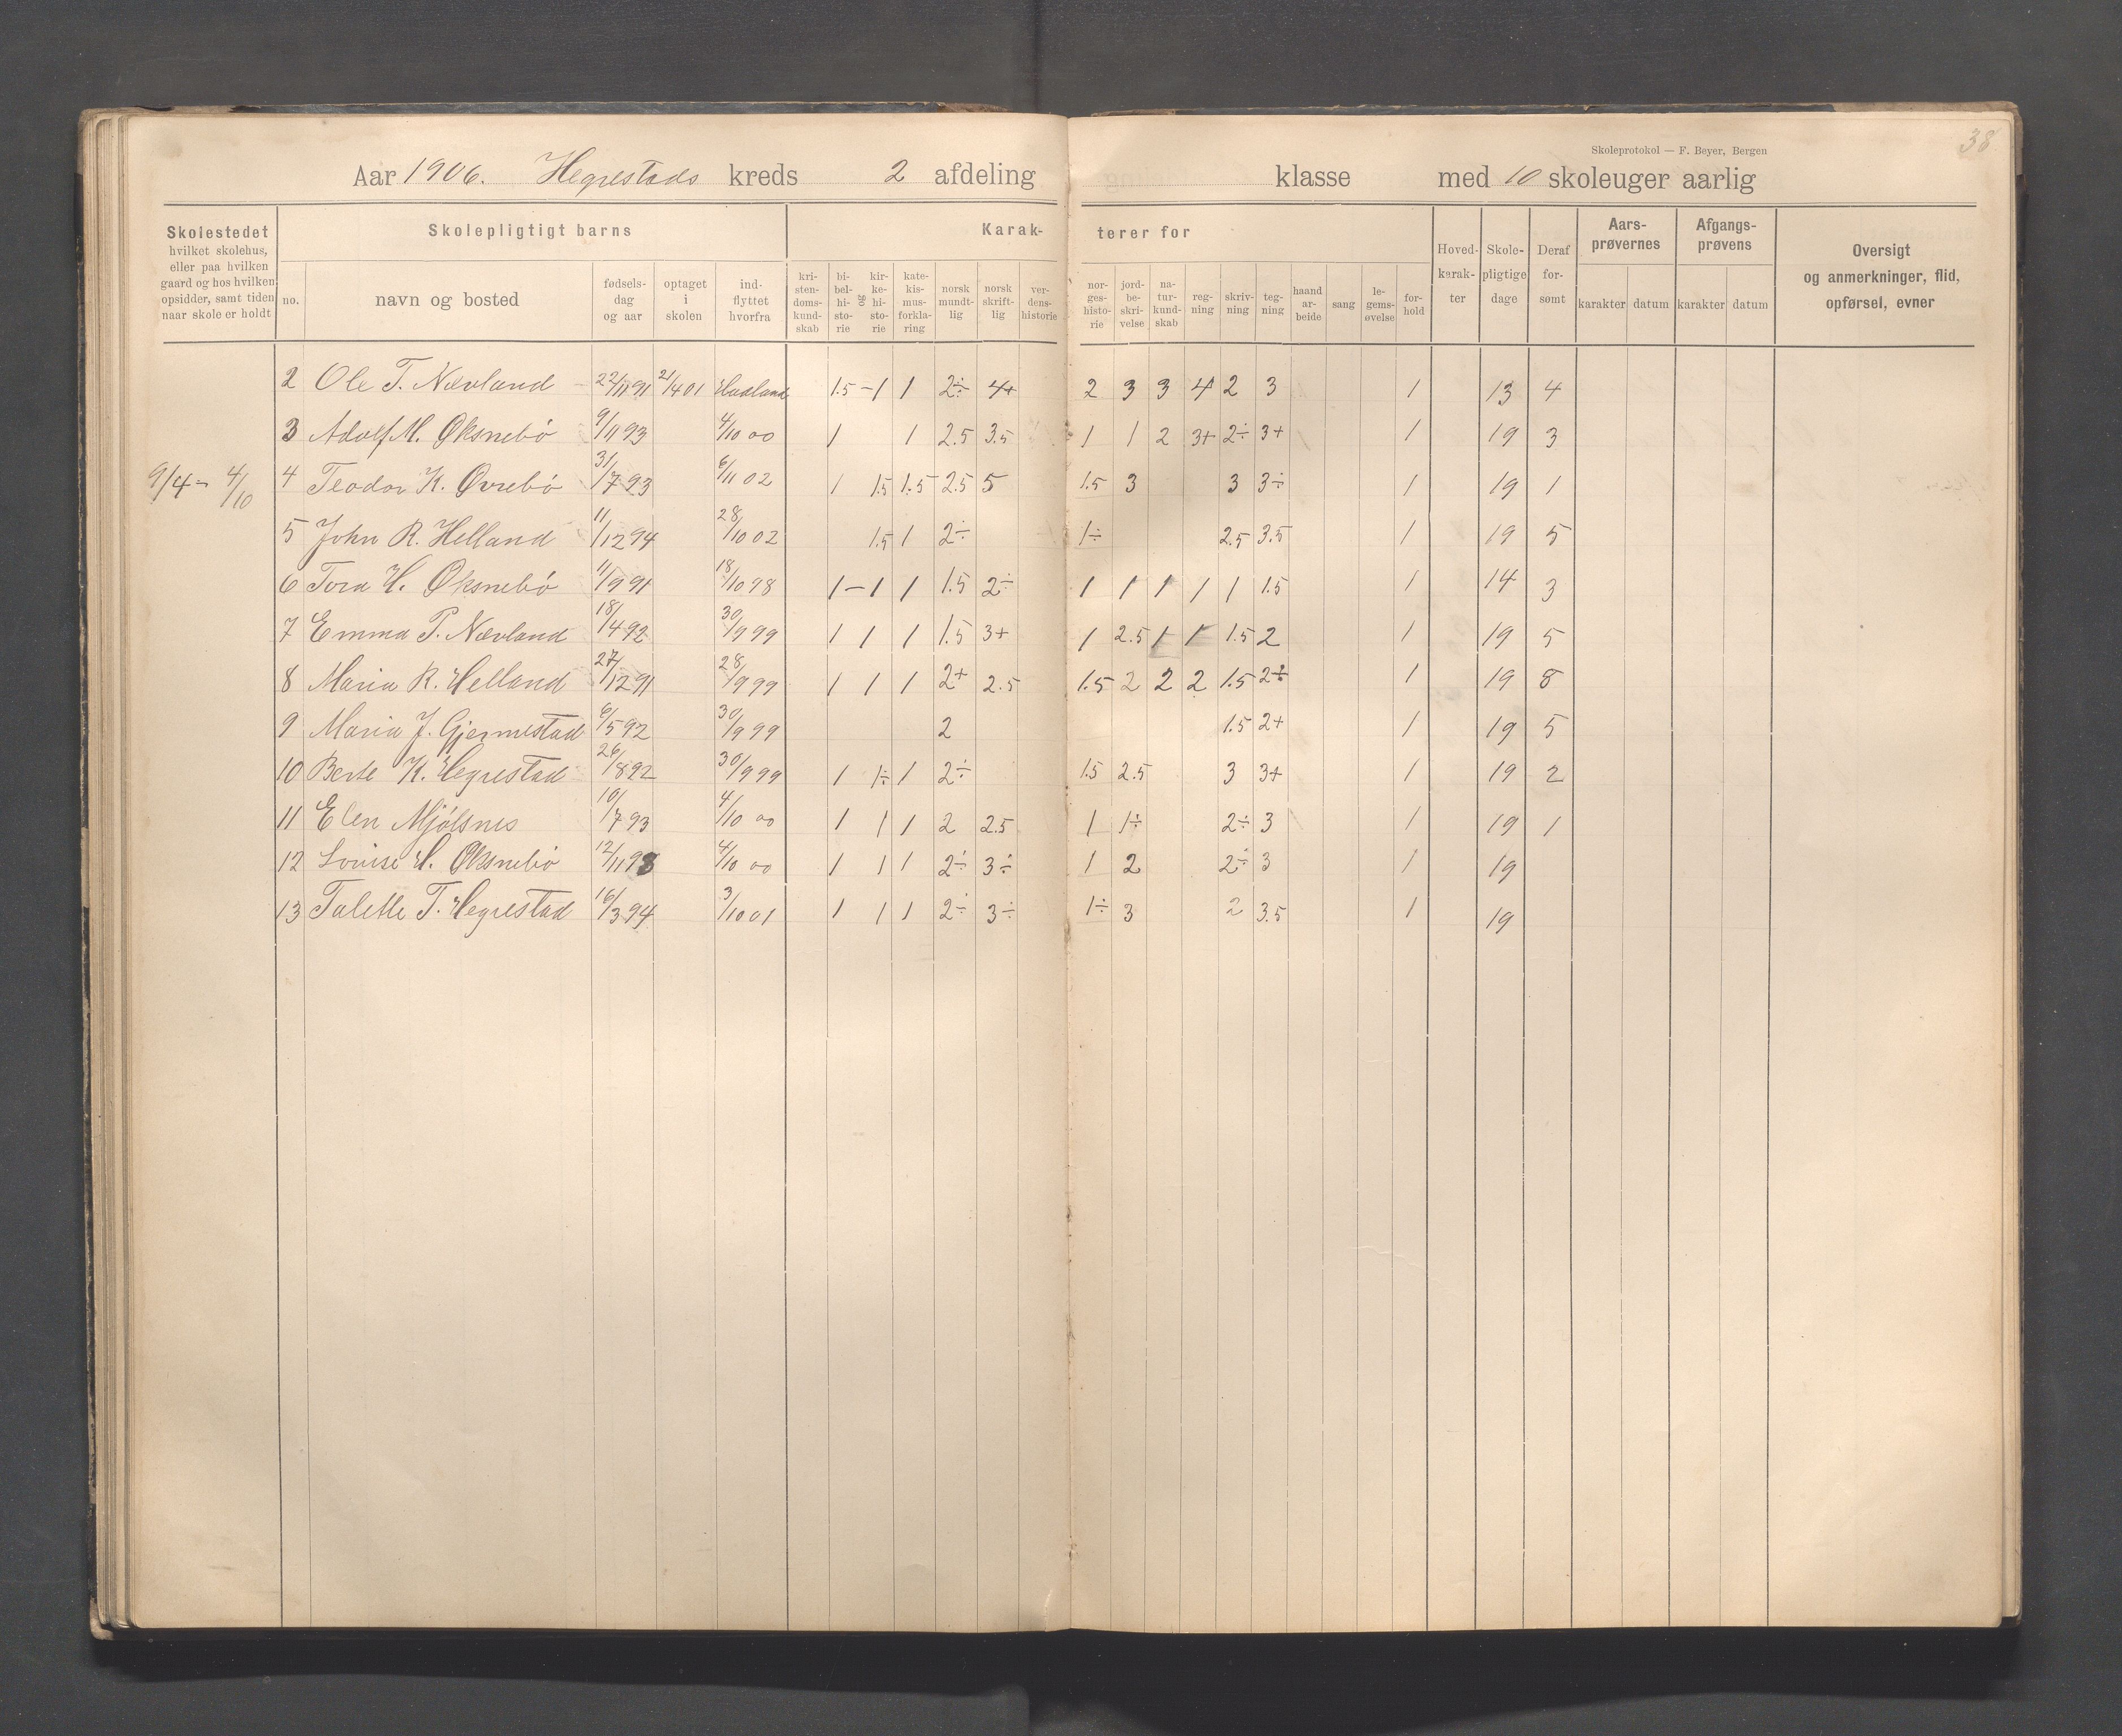 38
Skoleprotokol — F. Beyer, Bergen
Aar 1906. Hegrestads kreds 2 afdeling klasse med 10 skoleuger aarlig
Skolestedet hvilket skolehus, eller paa hvilken gaard og hos hvilken opsidder, samt tiden naar skole er holdt
Skolepligtigt barns
Karakterer for
no. navn og bosted fødselsdag og aar optaget i skolen indflyttet hvorfra
kristendomskundskab bibelhistorie og kirkehistorie katekismusforklaring norsk mundtlig norsk skriftlig verdenshistorie
norgeshistorie jordbeskrivelse naturkundskab regning skrivning tegning haandarbeide sang legemsøvelse forhold
Hovedkarakter Skolepligtige dage Deraf forsømt
Aarsprøvernes karakter datum
Afgangsprøvens karakter datum
Oversigt og anmerkninger, flid, opførsel, evner
2 Ole T. Nævland 22/11 91 2/4 01 1.5 – 1 1 2÷ 4+ 2 3 3 4 2 3 1 13 4
3 Adolf M. Øksnebö 9/11 93 4/10 00 1 1 2.5 3.5 1 1 2 3+ 2÷ 3+ 1 19 3
9/4 – 4/10 4 Teodor K. Øvrebö 31/7 93 6/11 02 1 1.5 1.5 2.5 5 1.5 3 3 3÷ 1 19 1
5 John R. Helland 11/12 94 28/10 02 1.5 1 2÷ 1÷ 2.5 3.5 1 19 5
6 Tora H. Øksnebö 11/9 91 18/10 98 1 – 1 1 1.5 2÷ 1 1 1 1 1 1.5 1 14 3
7 Emma P. Nævland 18/4 92 30/9 99 1 1 1 1.5 3+ 1 2.5 1 1 1.5 2 1 19 5
8 Maria R. Helland 27/12 91 28/9 99 1 1 1 2+ 2.5 1.5 2 2 2 1.5 2÷ 1 19 8
9 Maria J. Gjermestad 6/5 92 30/9 99 2 1.5 2+ 1 19 5
10 Berte K. Hegrestad 26/8 92 30/9 99 1 1÷ 1 2÷ 1.5 2.5 3 3+ 1 19 2
11 Elen Mjölsnes 10/7 93 4/10 00 1 1 1 2 2.5 1 1÷ 2÷ 3 1 19 1
12 Lovise H. Øksnebö 12/11 93 4/10 00 1 1 1 2÷ 3÷ 1 2 2÷ 3 1 19
13 Talette T. Hegrestad 16/3 94 3/10 01 1 1 1 2÷ 3÷ 1÷ 3 2 3.5 1 19